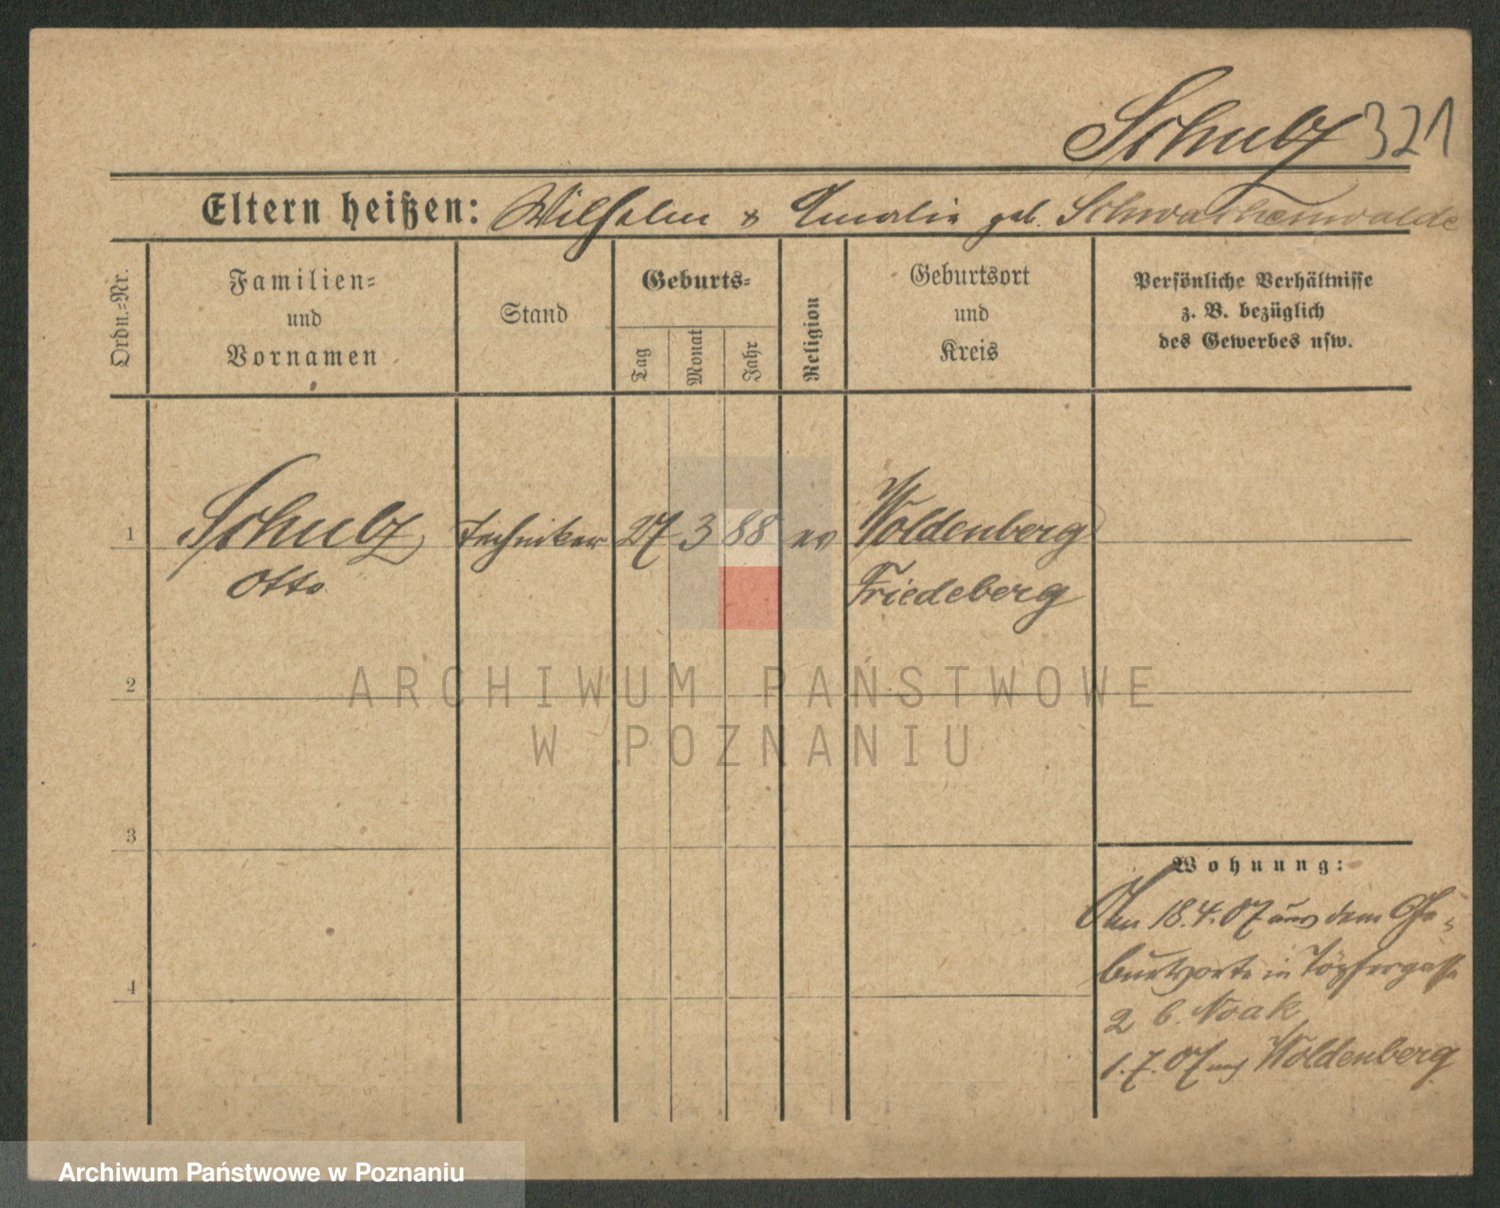 Schulz 321
Eltern heißen: Wilhelm & Amalie geb. Schwachenwalde
Ordn.-Nr.
Familien-
und
Vornamen
Stand
Geburts-
Tag
Monat
Jahr
Religion
Geburtsort
und
Kreis
Persönliche Verhältnisse
z. B. bezüglich
des Gewerbes usw.
1 Schulz Techniker 27 3 88 ev Woldenberg
Otto Friedeberg
2
ARCHIWUM PAŃSTWOWE
W POZNANIU
3
Wohnung:
Am 18.4.07 aus dem Ge-
burtsorte in Töpfergasse
4
2 b. Noak
1.7.07 nach Woldenberg
Archiwum Państwowe w Poznaniu